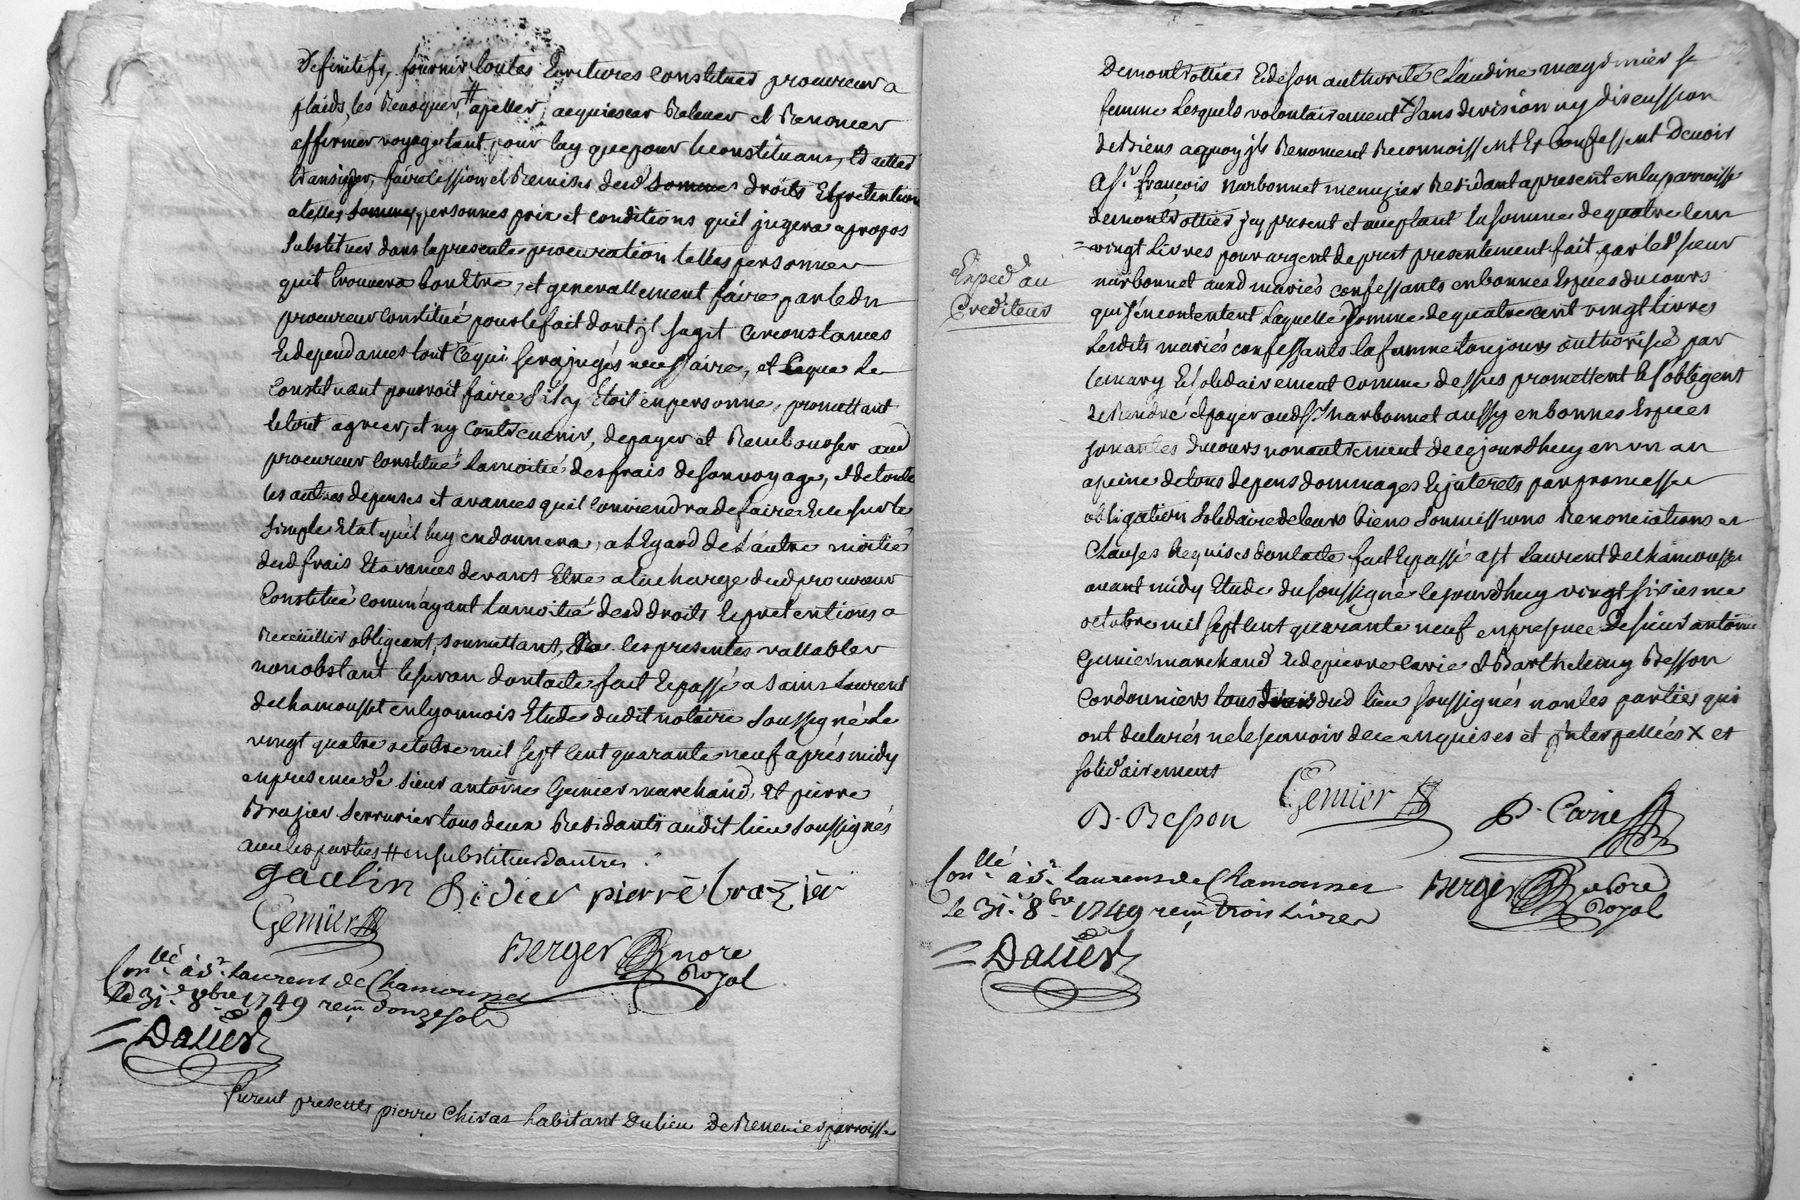 Definitifs, fournir toutes Ecritures constituer procureur a
plaids, les Revoquer # apeller, acquiescer Relever et Renoncer
affirmer voyage tant pour luy que pour le constituant, Et dattes
transiger, faire Cession et Remises desd sommes droits Et pretentions
a telles sommes personnes prix et conditions quil jugera apropos
substituer dans la presente procuration telles personnes
quil trouvera bon Etre, et generallement faire par led
procureur constitué pour le fait dont jl sagit circonstances
Et dependances tout Ce qui sera jugés necessaire, et Ce que Le
Constituant pouvroit faire Sil y Etoit en personne, promettant
le tout agréer, et ny Contrevenir, de payer et Rembourser aud
procureur Constitué La moitié des frais de son voyage, et de toutes
les autres depenses et avances quil Conviendra de faire Et ce sur le
simple Etat quil luy en donnera, a LEgard de Lautre moitié
desd frais Et avances devant Etre a la charge dud procureur
Constitué comm'ayant La moitié desd droits Et pretentions a
Recüeillir obligeant, soumettant, les presentes vallables
nonobstant le suran dont acte fait Et passé a Saint Laurent
de chamousset en lyonnois Etude dudit notaire Soussigné Le
vingt quatre octobre mil sept Cent quarante neuf aprés midy
en presence de sieur antoine Gemier marchand, Et pierre
Brazier Serrurier tous deux Residants audit lieu soussignés
avec les parties # en substituer dautres
gaulin Didier pierre brazier
Gemier
Berger nore
Royal
Conllé à St. Laurens de Chamousset
Le 31e. 8bre 1749 reçu donze sols
= Dalier
Furent presents pierre Chivas habitant du lieu de Revenier parroisse
De montrottier Et de son authorité Claudine magdinier sa
femme Lesquels volontairement X Sans division ny discussion
de Biens a quoy jls Renoncent Reconnoissent Et Confessent Devoir
A Sr. françois narbonnet menuzier Residant apresent en la parroisse
de montrottier jcy present et acceptant La somme de quatre Cent
= vingt Livres pour argent de prest presentement fait par led sieur
narbonnet auxd mariés confessants en bonnes Espéces du cours
Exped. au
Crediteur
qui s'en contentent Laquelle Somme de quatre cent vingt Livres
Lesdits mariés confessants la femme toujours authorisée par
le mary Et solidairement comme dessus promettent Et s'obligent
de Rendre et payer aud Sr. narbonnet aussy en bonnes Espéces
sonantes du cours non autrement de ce jourdhuy en un an
a peine de tous depens dommages Et interets par promesse
obligation Solidaire de leurs Biens Soumissions Renonciations et
Clauses Requises dont acte fait Et passé a St Laurent de chamousset
avant midy Etude du soussigné Le jourdhuy vingt sixieme
octobre mil sept Cent quarante neuf en presence De sieur antoine
Gemier marchand Et de pierre Carie et Barthelemy Besson
Cordonniers tous dud lieu soussignés non les parties qui
ont declarés ne le scavoir de ce enquises et Interpellées X et
solidairement
B. Besson Gemier P. Carie
Conllé à St. Laurens de Chamousset
Le 31e. 8bre 1749 reçu trois Livres
Berger nore
Royal
= Dalier